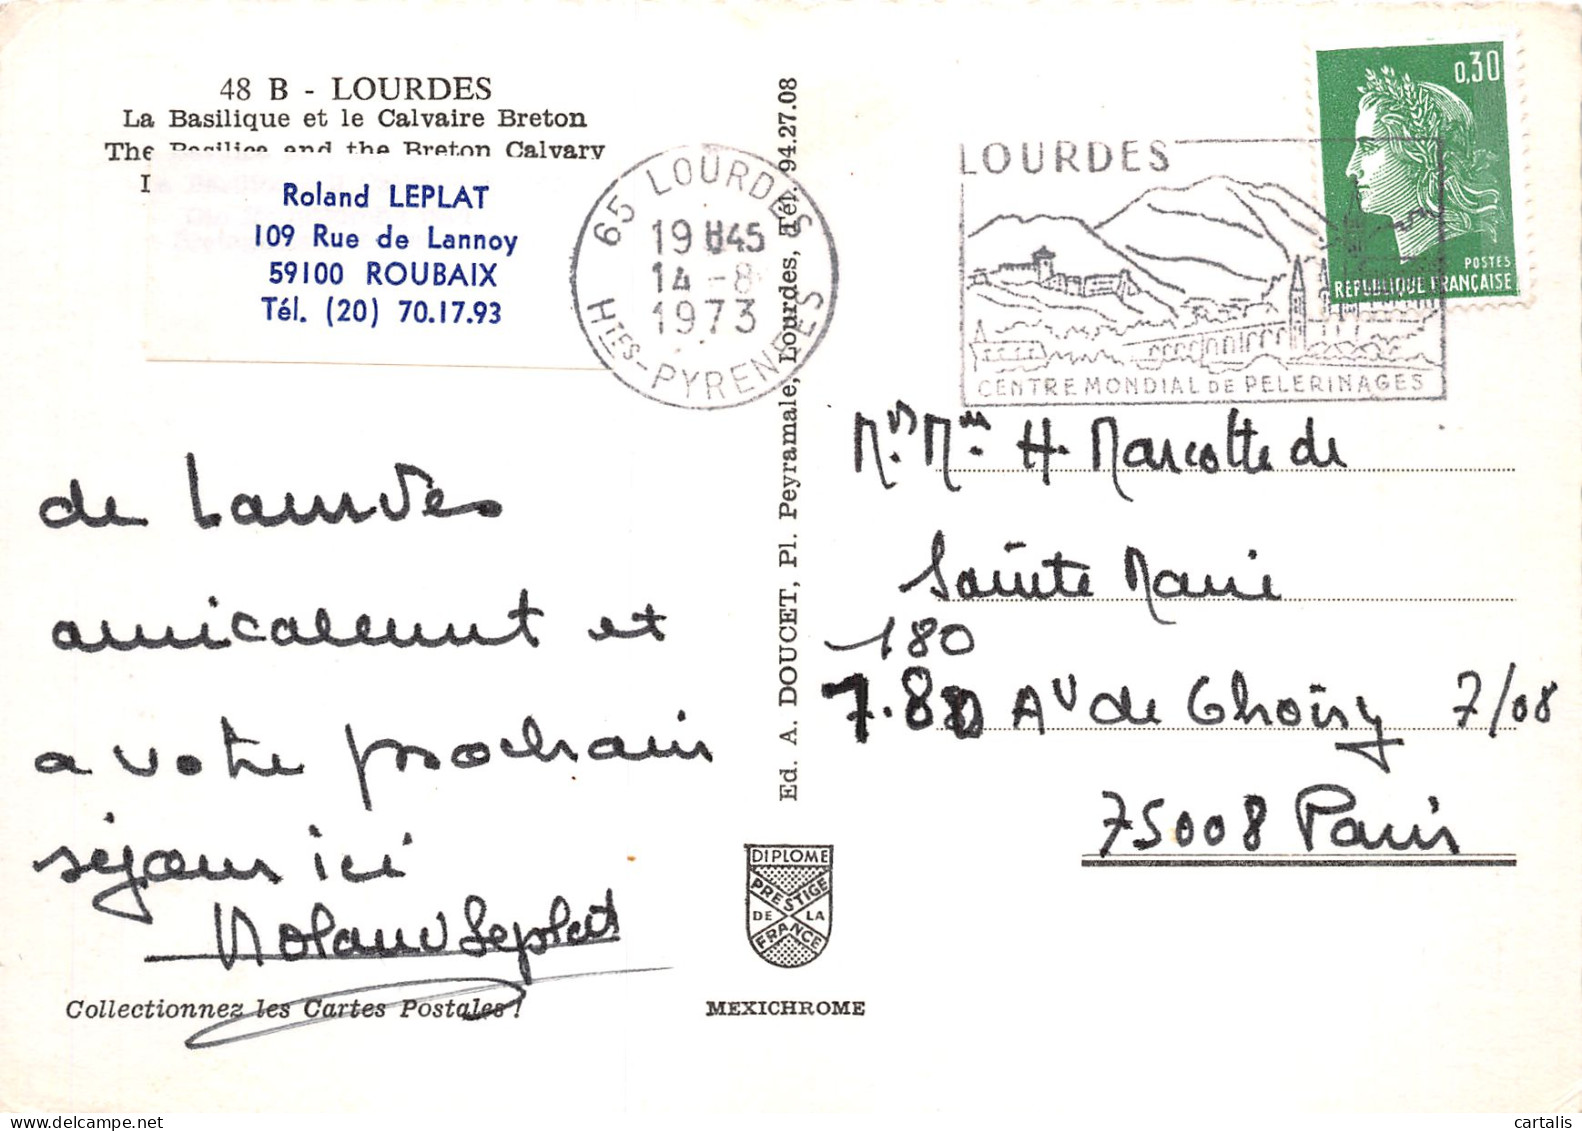 48 B - LOURDES
La Basilique et le Calvaire Breton
The Basilica and the Breton Calvary
Roland LEPLAT
109 Rue de Lannoy
59100 ROUBAIX
Tél. (20) 70.17.93
65 LOURDES
19H45
14-8
1973
Htes-PYRENEES
LOURDES
CENTRE MONDIAL DE PELERINAGES
0,30
POSTES
REPUBLIQUE FRANÇAISE
de Lourdes
amicalement et
a votre prochain
séjour ici
Roland Leplat
Collectionnez les Cartes Postales !
Ed. A. DOUCET, Pl. Peyramale, Lourdes, Tél. 94.27.08
DIPLOME
PRESTIGE
DE LA
FRANCE
MEXICHROME
Mr Mme H. Marcotte de
Sainte Marie
180
7.80 Av de Choisy 7/08
75008 Paris
cartalis
delcampe.net